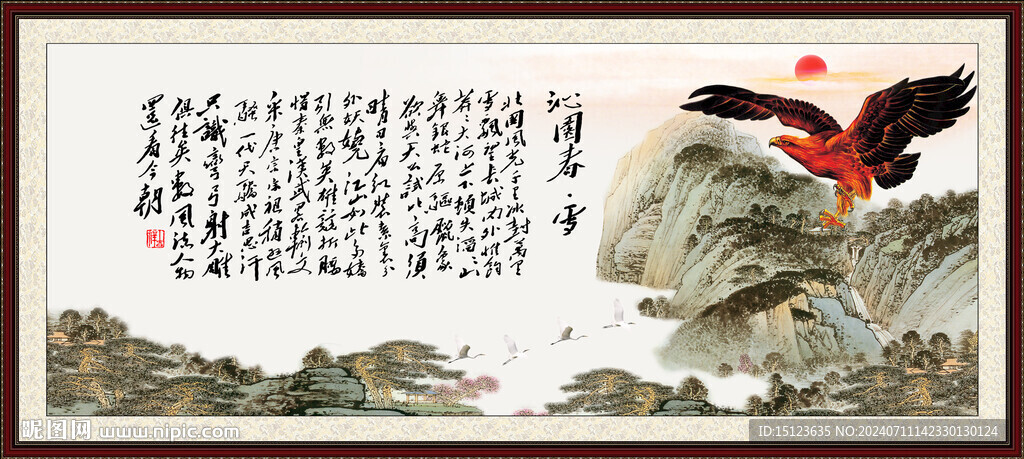 沁園春·雪
北國風光千里冰封萬里
雪飄望長城内外惟餘
莽莽大河上下頓失滔滔山
舞銀蛇原驅臘象
欲與天公試比高須
晴日看紅裝素裹分
外妖嬈江山如此多嬌
引無數英雄競折腰
惜秦皇漢武略輸文
采唐宗宋祖稍遜風
騷一代天驕成吉思汗
只識彎弓射大雕
俱往矣數風流人物
還看今朝
昵图网 www.nipic.com
ID:15123635 NO:20240711142330130124